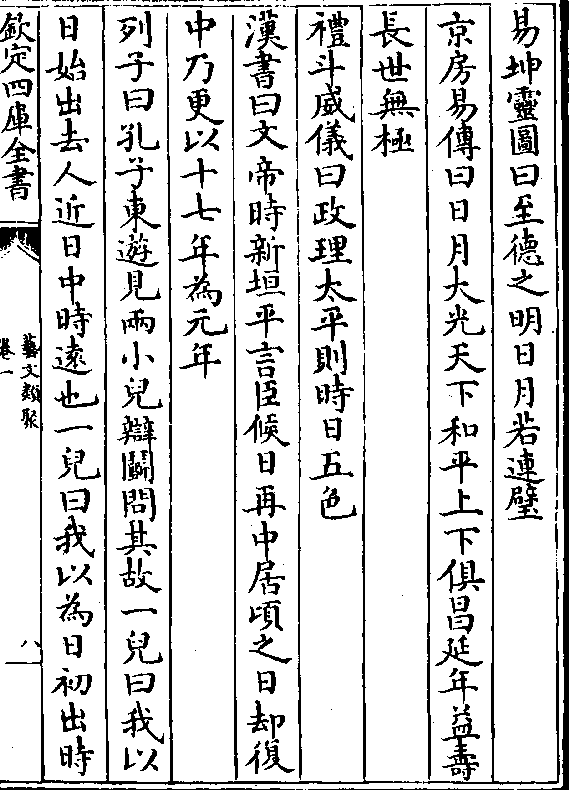 易坤靈圖曰至德之明日月若連璧
京房易傳曰日月大光天下和平上下俱昌延年益壽
長世無極
禮斗威儀曰政理太平則時日五色
漢書曰文帝時新垣平言臣候日再中居頃之日却復
中乃更以十七年為元年
列子曰孔子東遊見兩小兒辯鬭問其故一兒曰我以
日始出去人近日中時遠也一兒曰我以為日初出時
欽定四庫全書
藝文類聚
卷一
八